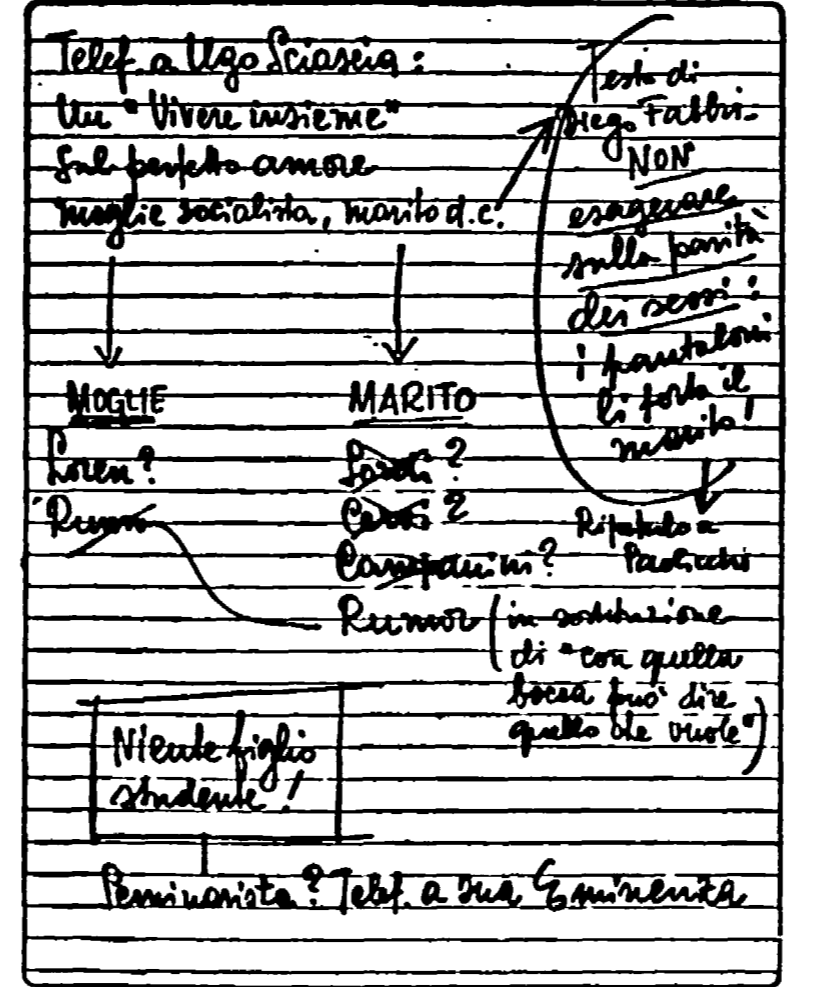 Telef. a Ugo Sciascia:
Un "Vivere insieme"
sul perfetto amore
moglie socialista, marito d.c.
Testo di
Diego Fabbri-
NON
esagerare
sulla parità
dei sessi:
i pantaloni
li porta il
marito!
Ripeterlo a
Paolicchi
MOGLIE
Loren?
Rumor
MARITO
Sordi?
Cervi?
Campanini?
Rumor (in sostituzione
di "con quella
bocca può dire
quello che vuole")
Niente figlio
studente!
Seminarista? Telef. a Sua Eminenza